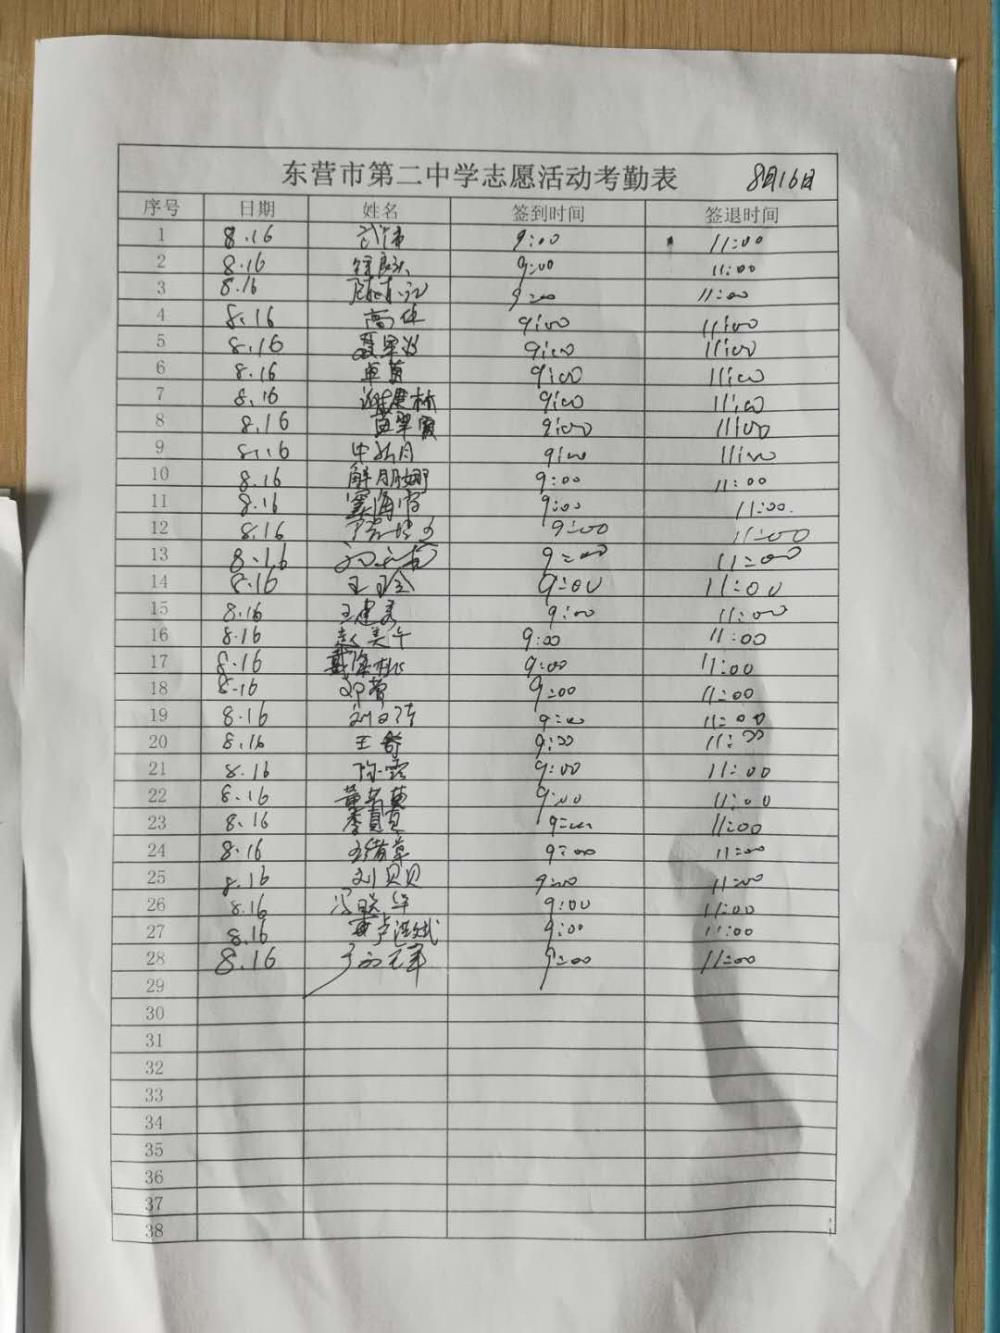 东营市第二中学志愿活动考勤表 8月16日
序号 日期 姓名 签到时间 签退时间
1 8.16 9:00 11:00
2 8.16 9:00 11:00
3 8.16 9:00 11:00
4 8.16 高伟 9:00 11:00
5 8.16 9:00 11:00
6 8.16 单茜 9:00 11:00
7 8.16 9:00 11:00
8 8.16 苗翠霞 9:00 11:00
9 8.16 9:00 11:00
10 8.16 解朋娜 9:00 11:00
11 8.16 9:00 11:00.
12 8.16 9:00 11:00
13 8.16 9:00 11:00
14 8.16 9:00 11:00
15 8.16 王建秀 9:00 11:00
16 8.16 赵美午 9:00 11:00
17 8.16 9:00 11:00
18 8.16 邓菅 9:00 11:00
19 8.16 9:00 11:00
20 8.16 王舒 9:00 11:00
21 8.16 陈露 9:00 11:00
22 8.16 9:00 11:00
23 8.16 9:00 11:00
24 8.16 9:00 11:00
25 8.16 刘贝贝 9:00 11:00
26 8.16 9:00 11:00
27 8.16 9:00 11:00
28 8.16 9:00 11:00
29
30
31
32
33
34
35
36
37
38